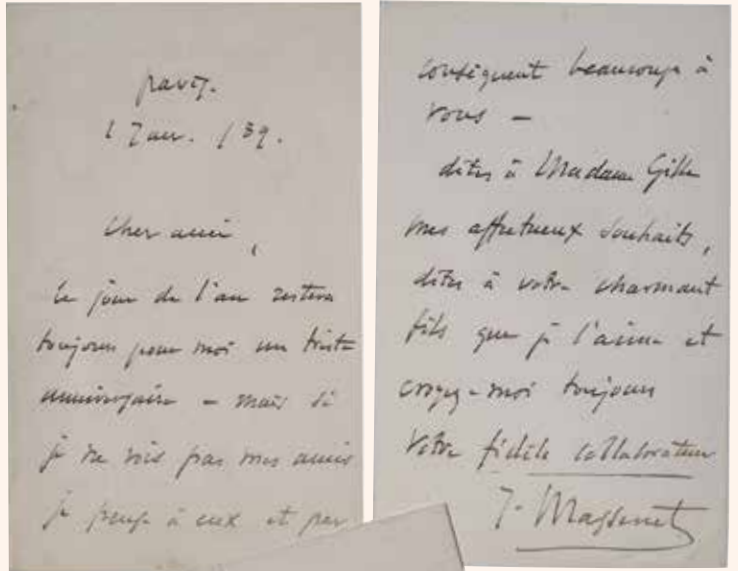 Paris.
1 Jan. /89.
Cher ami,
Le jour de l'an restera
toujours pour moi un triste
anniversaire – mais si
je ne vois pas mes amis
je pense à eux et par
conséquent beaucoup à
vous –
dites à Madame Gille
mes affectueux souhaits,
dites à votre charmant
fils que je l'aime et
croyez-moi toujours
Votre fidèle collaborateur
J. Massenet